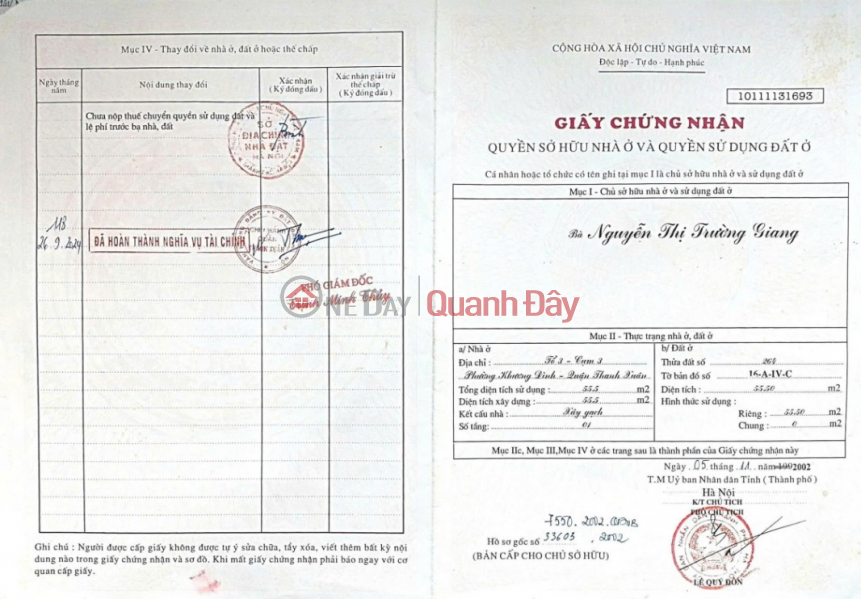 Mục IV - Thay đổi về nhà ở, đất ở hoặc thế chấp
Ngày tháng năm
Nội dung thay đổi
Xác nhận
( Ký đóng dấu )
Xác nhận giải trừ
thế chấp
( Ký đóng dấu )
Chưa nộp thuế chuyển quyền sử dụng đất và
lệ phí trước bạ nhà, đất
SỞ
ĐỊA CHÍNH
NHÀ ĐẤT
HÀ NỘI
26.9.2024
ĐÃ HOÀN THÀNH NGHĨA VỤ TÀI CHÍNH
PHÓ GIÁM ĐỐC
Trịnh Minh Thủy
Ghi chú : Người được cấp giấy không được tự ý sửa chữa, tẩy xóa, viết thêm bất kỳ nội
dung nào trong giấy chứng nhận và sơ đồ. Khi mất giấy chứng nhận phải báo ngay với cơ
quan cấp giấy.
ONE DAY Quanh Đây
CỘNG HÒA XÃ HỘI CHỦ NGHĨA VIỆT NAM
Độc lập - Tự do - Hạnh phúc
10111131693
GIẤY CHỨNG NHẬN
QUYỀN SỞ HỮU NHÀ Ở VÀ QUYỀN SỬ DỤNG ĐẤT Ở
Cá nhân hoặc tổ chức có tên ghi tại mục I là chủ sở hữu nhà ở và sử dụng đất ở
Mục I - Chủ sở hữu nhà ở và sử dụng đất ở
Bà Nguyễn Thị Trường Giang
Mục II - Thực trạng nhà ở, đất ở
a/ Nhà ở
Địa chỉ : Tổ 3 - Cụm 3
Phường Khương Đình - Quận Thanh Xuân
Tổng diện tích sử dụng : 55.5 m2
Diện tích xây dựng : 55.5 m2
Kết cấu nhà : Xây gạch
Số tầng: 01
b/ Đất ở
Thửa đất số 264
Tờ bản đồ số 16-A-IV-C
Diện tích : 55.50 m2
Hình thức sử dụng :
Riêng : 55.50 m2
Chung : 0 m2
Mục IIc, Mục III,Mục IV ở các trang sau là thành phần của Giấy chứng nhận này
Ngày 05 tháng 11 năm 2002
T.M Uỷ ban Nhân dân Tỉnh ( Thành phố )
Hà Nội
K/T CHỦ TỊCH
PHÓ CHỦ TỊCH
7550.2002
Hồ sơ gốc số 33603 . 2002
(BẢN CẤP CHO CHỦ SỞ HỮU)
LÊ QUÝ ĐÔN